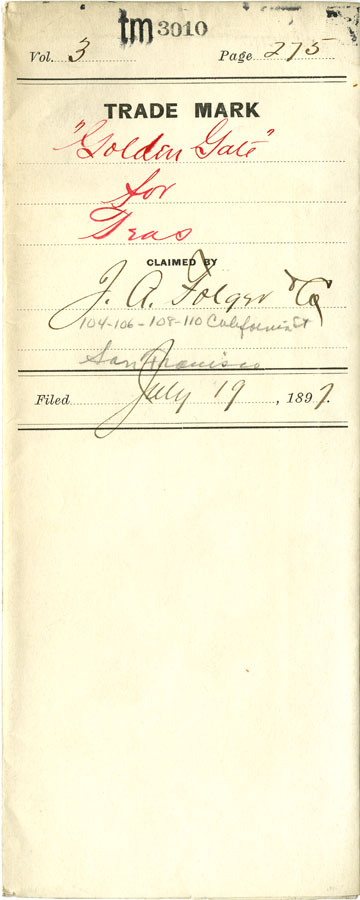 tm 3010
Vol. 3 Page 275
TRADE MARK
"Golden Gate"
for
Teas
CLAIMED BY
J. A. Folger & Co
104-106-108-110 California St
San Francisco
Filed July 19, 1897.